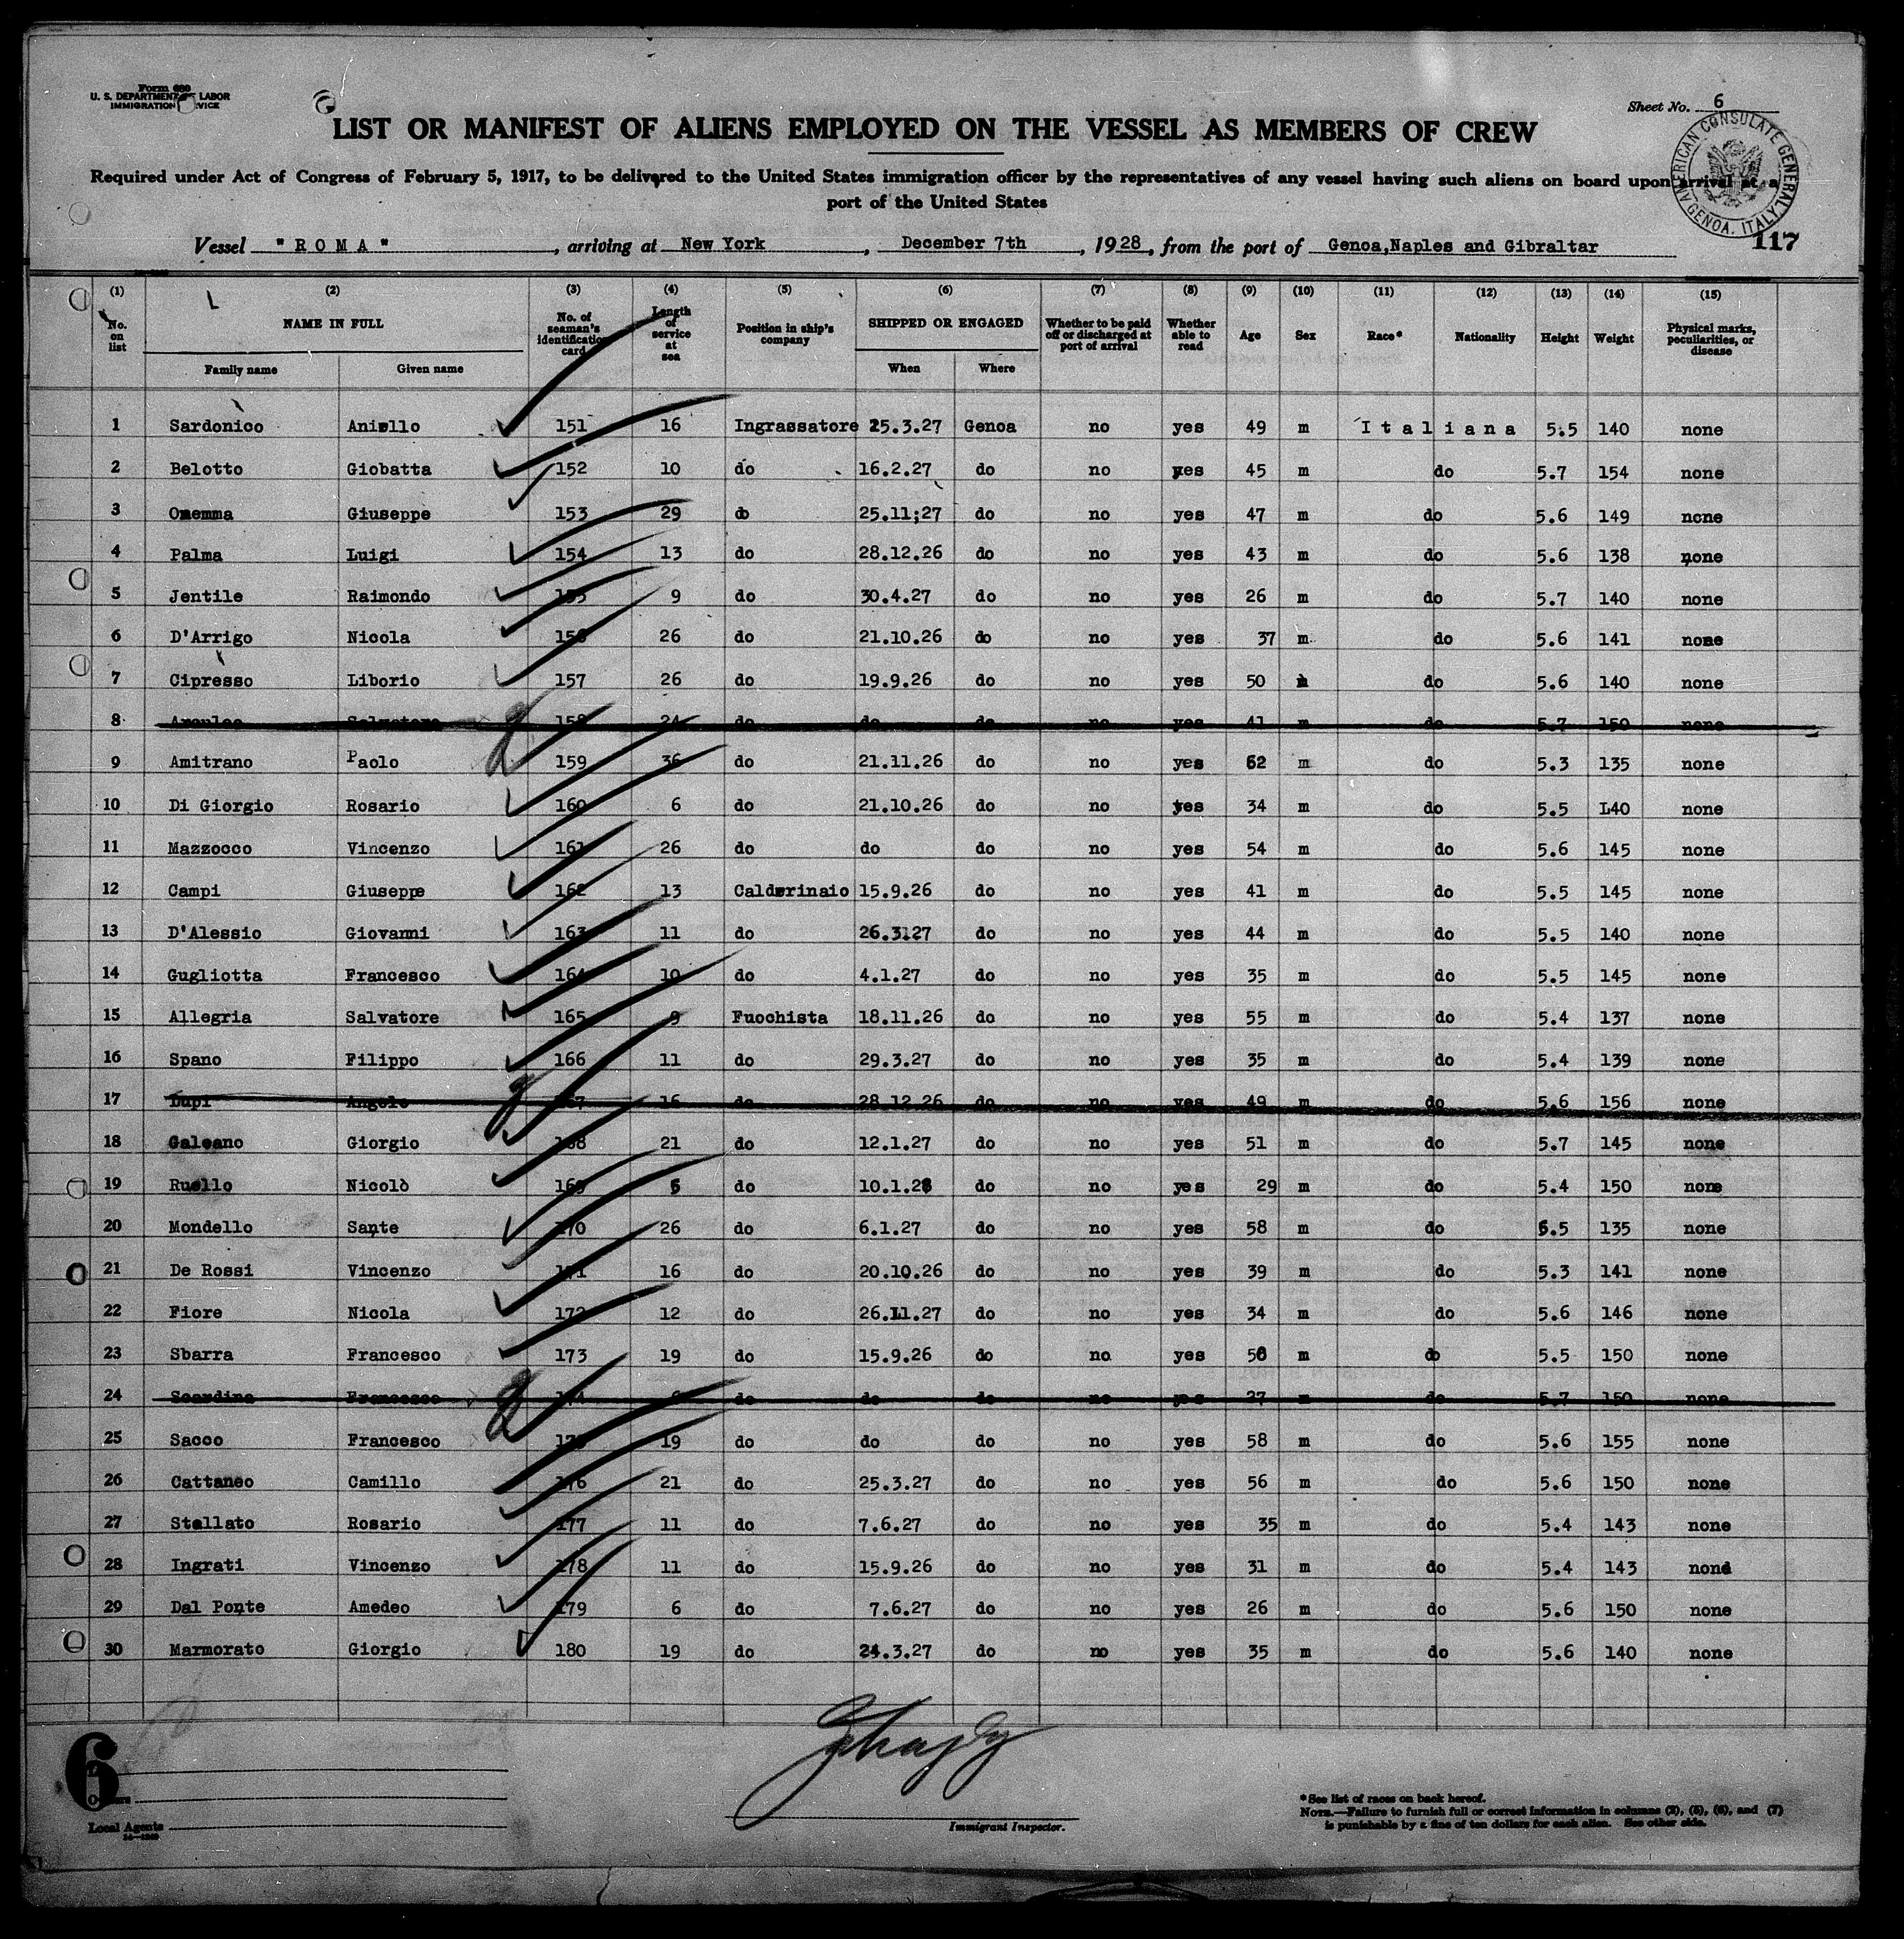 Form 680
U. S. DEPARTMENT LABOR
IMMIGRATION VICE
Sheet No. 6
LIST OR MANIFEST OF ALIENS EMPLOYED ON THE VESSEL AS MEMBERS OF CREW
Required under Act of Congress of February 5, 1917, to be delivered to the United States immigration officer by the representatives of any vessel having such aliens on board upon arrival at a
port of the United States
AMERICAN CONSULATE GENERAL, GENOA, ITALY.
Vessel "ROMA", arriving at New York, December 7th, 1928, from the port of Genoa,Naples and Gibraltar
117
(1) (2) (3) (4) (5) (6) (7) (8) (9) (10) (11) (12) (13) (14) (15)
No. on list NAME IN FULL Family name Given name No. of seaman's identification card Length of service at sea Position in ship's company SHIPPED OR ENGAGED When Where Whether to be paid off or discharged at port of arrival Whether able to read Age Sex Race* Nationality Height Weight Physical marks, peculiarities, or disease
1 Sardonico Aniello 151 16 Ingrassatore 25.3.27 Genoa no yes 49 m Italiana 5.5 140 none
2 Belotto Giobatta 152 10 do 16.2.27 do no yes 45 m do 5.7 154 none
3 Onemma Giuseppe 153 29 do 25.11;27 do no yes 47 m do 5.6 149 none
4 Palma Luigi 154 13 do 28.12.26 do no yes 43 m do 5.6 138 none
5 Jentile Raimondo 155 9 do 30.4.27 do no yes 26 m do 5.7 140 none
6 D'Arrigo Nicola 156 26 do 21.10.26 do no yes 37 m do 5.6 141 none
7 Cipresso Liborio 157 26 do 19.9.26 do no yes 50 m do 5.6 140 none
8 Salvatore 158 24 do do do no yes 41 m do 5.7 150 none
9 Amitrano Paolo 159 36 do 21.11.26 do no yes 62 m do 5.3 135 none
10 Di Giorgio Rosario 160 6 do 21.10.26 do no yes 34 m do 5.5 L40 none
11 Mazzocco Vincenzo 161 26 do do do no yes 54 m do 5.6 145 none
12 Campi Giuseppe 162 13 Calderinaio 15.9.26 do no yes 41 m do 5.5 145 none
13 D'Alessio Giovanni 163 11 do 26.3.27 do no yes 44 m do 5.5 140 none
14 Gugliotta Francesco 164 10 do 4.1.27 do no yes 35 m do 5.5 145 none
15 Allegria Salvatore 165 9 Fuochista 18.11.26 do no yes 55 m do 5.4 137 none
16 Spano Filippo 166 11 do 29.3.27 do no yes 35 m do 5.4 139 none
17 Lupi Angelo 167 16 do 28.12.26 do no yes 49 m do 5.6 156 none
18 Galeano Giorgio 168 21 do 12.1.27 do no yes 51 m do 5.7 145 none
19 Ruello Nicolò 169 5 do 10.1.28 do no yes 29 m do 5.4 150 none
20 Mondello Sante 170 26 do 6.1.27 do no yes 58 m do 5.5 135 none
21 De Rossi Vincenzo 171 16 do 20.10.26 do no yes 39 m do 5.3 141 none
22 Fiore Nicola 172 12 do 26.11.27 do no yes 34 m do 5.6 146 none
23 Sbarra Francesco 173 19 do 15.9.26 do no yes 56 m do 5.5 150 none
24 Scardina Francesco 174 6 do do do no yes 27 m do 5.7 150 none
25 Sacco Francesco 175 19 do do do no yes 58 m do 5.6 155 none
26 Cattaneo Camillo 176 21 do 25.3.27 do no yes 56 m do 5.6 150 none
27 Stellato Rosario 177 11 do 7.6.27 do no yes 35 m do 5.4 143 none
28 Ingrati Vincenzo 178 11 do 15.9.26 do no yes 31 m do 5.4 143 none
29 Dal Ponte Amedeo 179 6 do 7.6.27 do no yes 26 m do 5.6 150 none
30 Marmorato Giorgio 180 19 do 24.3.27 do no yes 35 m do 5.6 140 none
6
Local Agents
14—1240
Immigrant Inspector.
*See list of races on back hereof.
NOTE.—Failure to furnish full or correct information in columns (2), (5), (6), and (7)
is punishable by a fine of ten dollars for each alien. See other side.